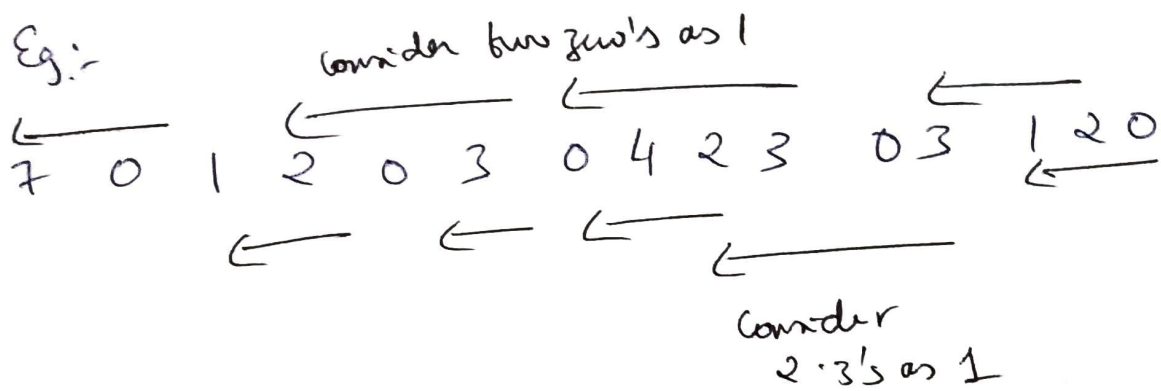 Eg:-
consider two zero's as 1
7 0 1 2 0 3 0 4 2 3 0 3 1 2 0
Consider
2 3's as 1